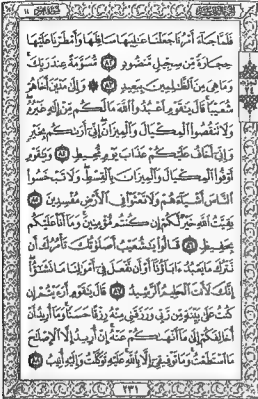 فَلَمَّا جَآءَ أَمْرُنَا جَعَلْنَا عَٰلِيَهَا سَافِلَهَا وَأَمْطَرْنَا عَلَيْهَا
حِجَارَةً مِّن سِجِّيلٍ مَّنضُودٍ ٨٢ مُّسَوَّمَةً عِندَ رَبِّكَ
وَمَا هِىَ مِنَ ٱلظَّٰلِمِينَ بِبَعِيدٍ ٨٣ وَإِلَىٰ مَدْيَنَ أَخَاهُمْ
شُعَيْبًا قَالَ يَٰقَوْمِ ٱعْبُدُوا۟ ٱللَّهَ مَا لَكُم مِّنْ إِلَٰهٍ غَيْرُهُۥ
وَلَا تَنقُصُوا۟ ٱلْمِكْيَالَ وَٱلْمِيزَانَ إِنِّىٓ أَرَىٰكُم بِخَيْرٍ
وَإِنِّىٓ أَخَافُ عَلَيْكُمْ عَذَابَ يَوْمٍ مُّحِيطٍ ٨٤ وَيَٰقَوْمِ
أَوْفُوا۟ ٱلْمِكْيَالَ وَٱلْمِيزَانَ بِٱلْقِسْطِ وَلَا تَبْخَسُوا۟
ٱلنَّاسَ أَشْيَآءَهُمْ وَلَا تَعْثَوْا۟ فِى ٱلْأَرْضِ مُفْسِدِينَ ٨٥
بَقِيَّتُ ٱللَّهِ خَيْرٌ لَّكُمْ إِن كُنتُم مُّؤْمِنِينَ وَمَآ أَنَا۠ عَلَيْكُم
بِحَفِيظٍ ٨٦ قَالُوا۟ يَٰشُعَيْبُ أَصَلَوٰتُكَ تَأْمُرُكَ أَن
نَّتْرُكَ مَا يَعْبُدُ ءَابَآؤُنَآ أَوْ أَن نَّفْعَلَ فِىٓ أَمْوَٰلِنَا مَا نَشَٰٓؤُا۟
إِنَّكَ لَأَنتَ ٱلْحَلِيمُ ٱلرَّشِيدُ ٨٧ قَالَ يَٰقَوْمِ أَرَءَيْتُمْ إِن
كُنتُ عَلَىٰ بَيِّنَةٍ مِّن رَّبِّى وَرَزَقَنِى مِنْهُ رِزْقًا حَسَنًا وَمَآ أُرِيدُ أَنْ
أُخَالِفَكُمْ إِلَىٰ مَآ أَنْهَىٰكُمْ عَنْهُ إِنْ أُرِيدُ إِلَّا ٱلْإِصْلَٰحَ
مَا ٱسْتَطَعْتُ وَمَا تَوْفِيقِىٓ إِلَّا بِٱللَّهِ عَلَيْهِ تَوَكَّلْتُ وَإِلَيْهِ أُنِيبُ ٨٨
٢٣١